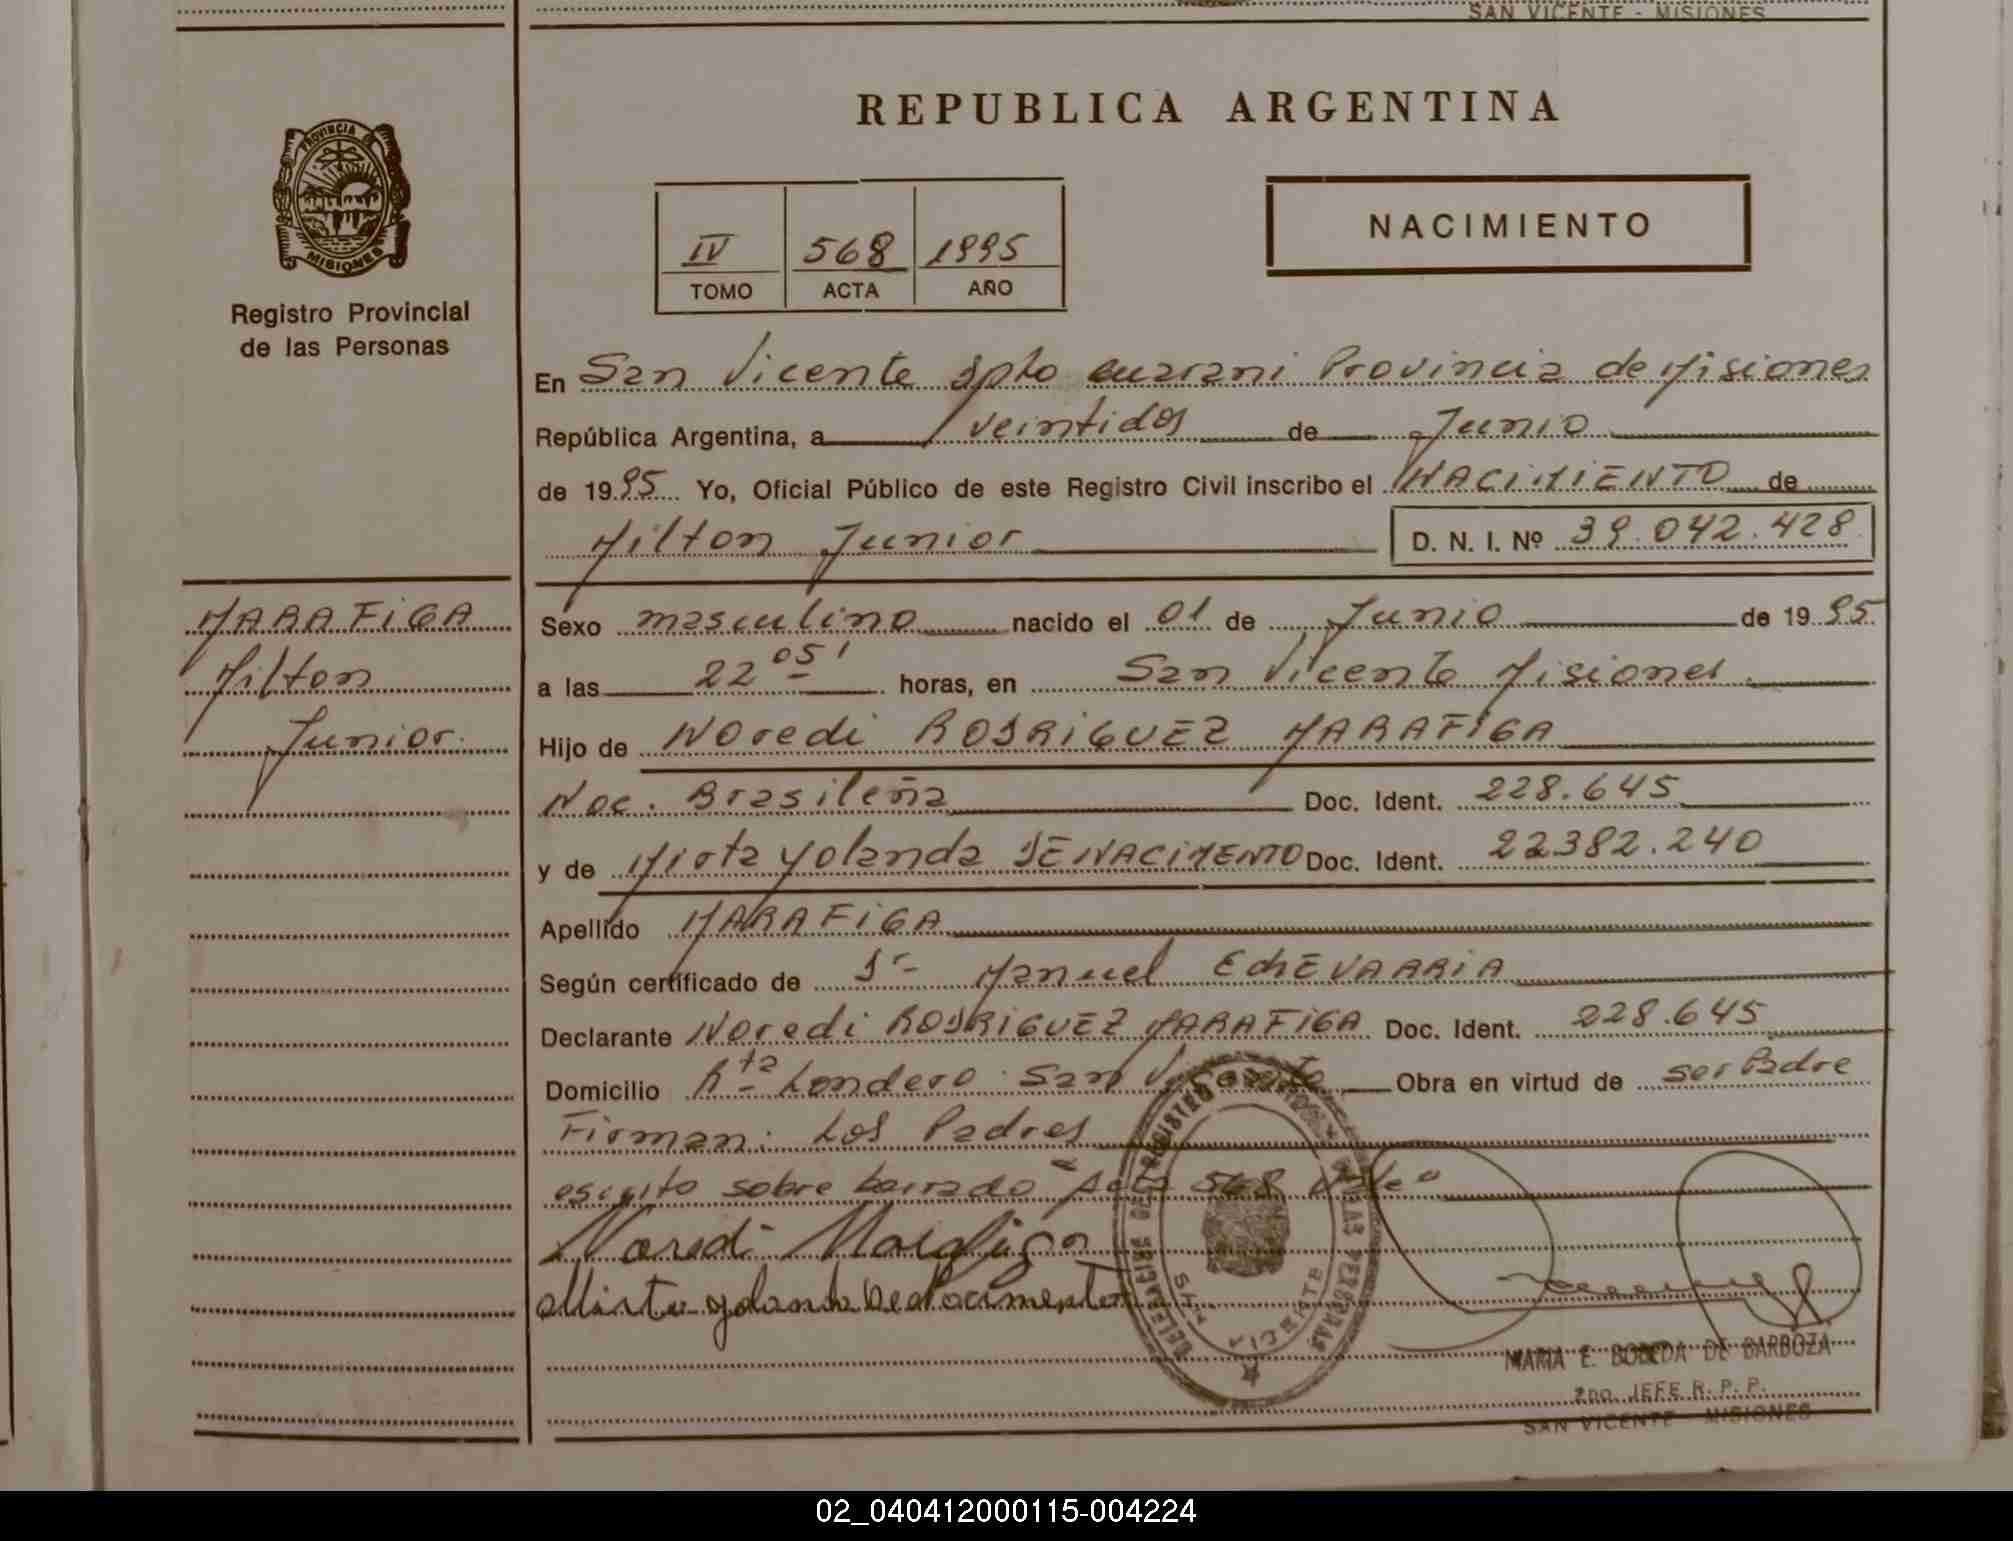 SAN VICENTE - MISIONES
REPUBLICA ARGENTINA
PROVINCIA DE
MISIONES
Registro Provincial
de las Personas
IV 568 1995
TOMO ACTA AÑO
NACIMIENTO
En San Vicente Dpto Guarani Provincia de Misiones
República Argentina, a veintidos de Junio
de 1995 Yo, Oficial Público de este Registro Civil inscribo el NACIMIENTO de
Milton Junior D. N. I. Nº 39.042.428
MARAFIGA
Milton
Junior.
Sexo masculino nacido el 01 de Junio de 1995
a las 22 05' horas, en San Vicente Misiones
Hijo de Noredi RODRIGUEZ MARAFIGA
Nac. Brasileña Doc. Ident. 228.645
y de Mirta Yolanda DE NACIMENTO Doc. Ident. 22382.240
Apellido MARAFIGA
Según certificado de Dr Manuel ECHEVARRIA
Declarante Noredi RODRIGUEZ MARAFIGA Doc. Ident. 228.645
Domicilio Rta Londero San Vicente Obra en virtud de ser Padre
Firman: Los Padres
escrito sobre borrado "Acta 568 Vale"
Noredi Marafiga
Mirta yolanda De Nacimento
DELEGACION DEL REGISTRO DE LAS PERSONAS
SAN VICENTE
MARIA E. BOBEDA DE BARBOZA
2do. JEFE R. P. P.
SAN VICENTE MISIONES
02_040412000115-004224